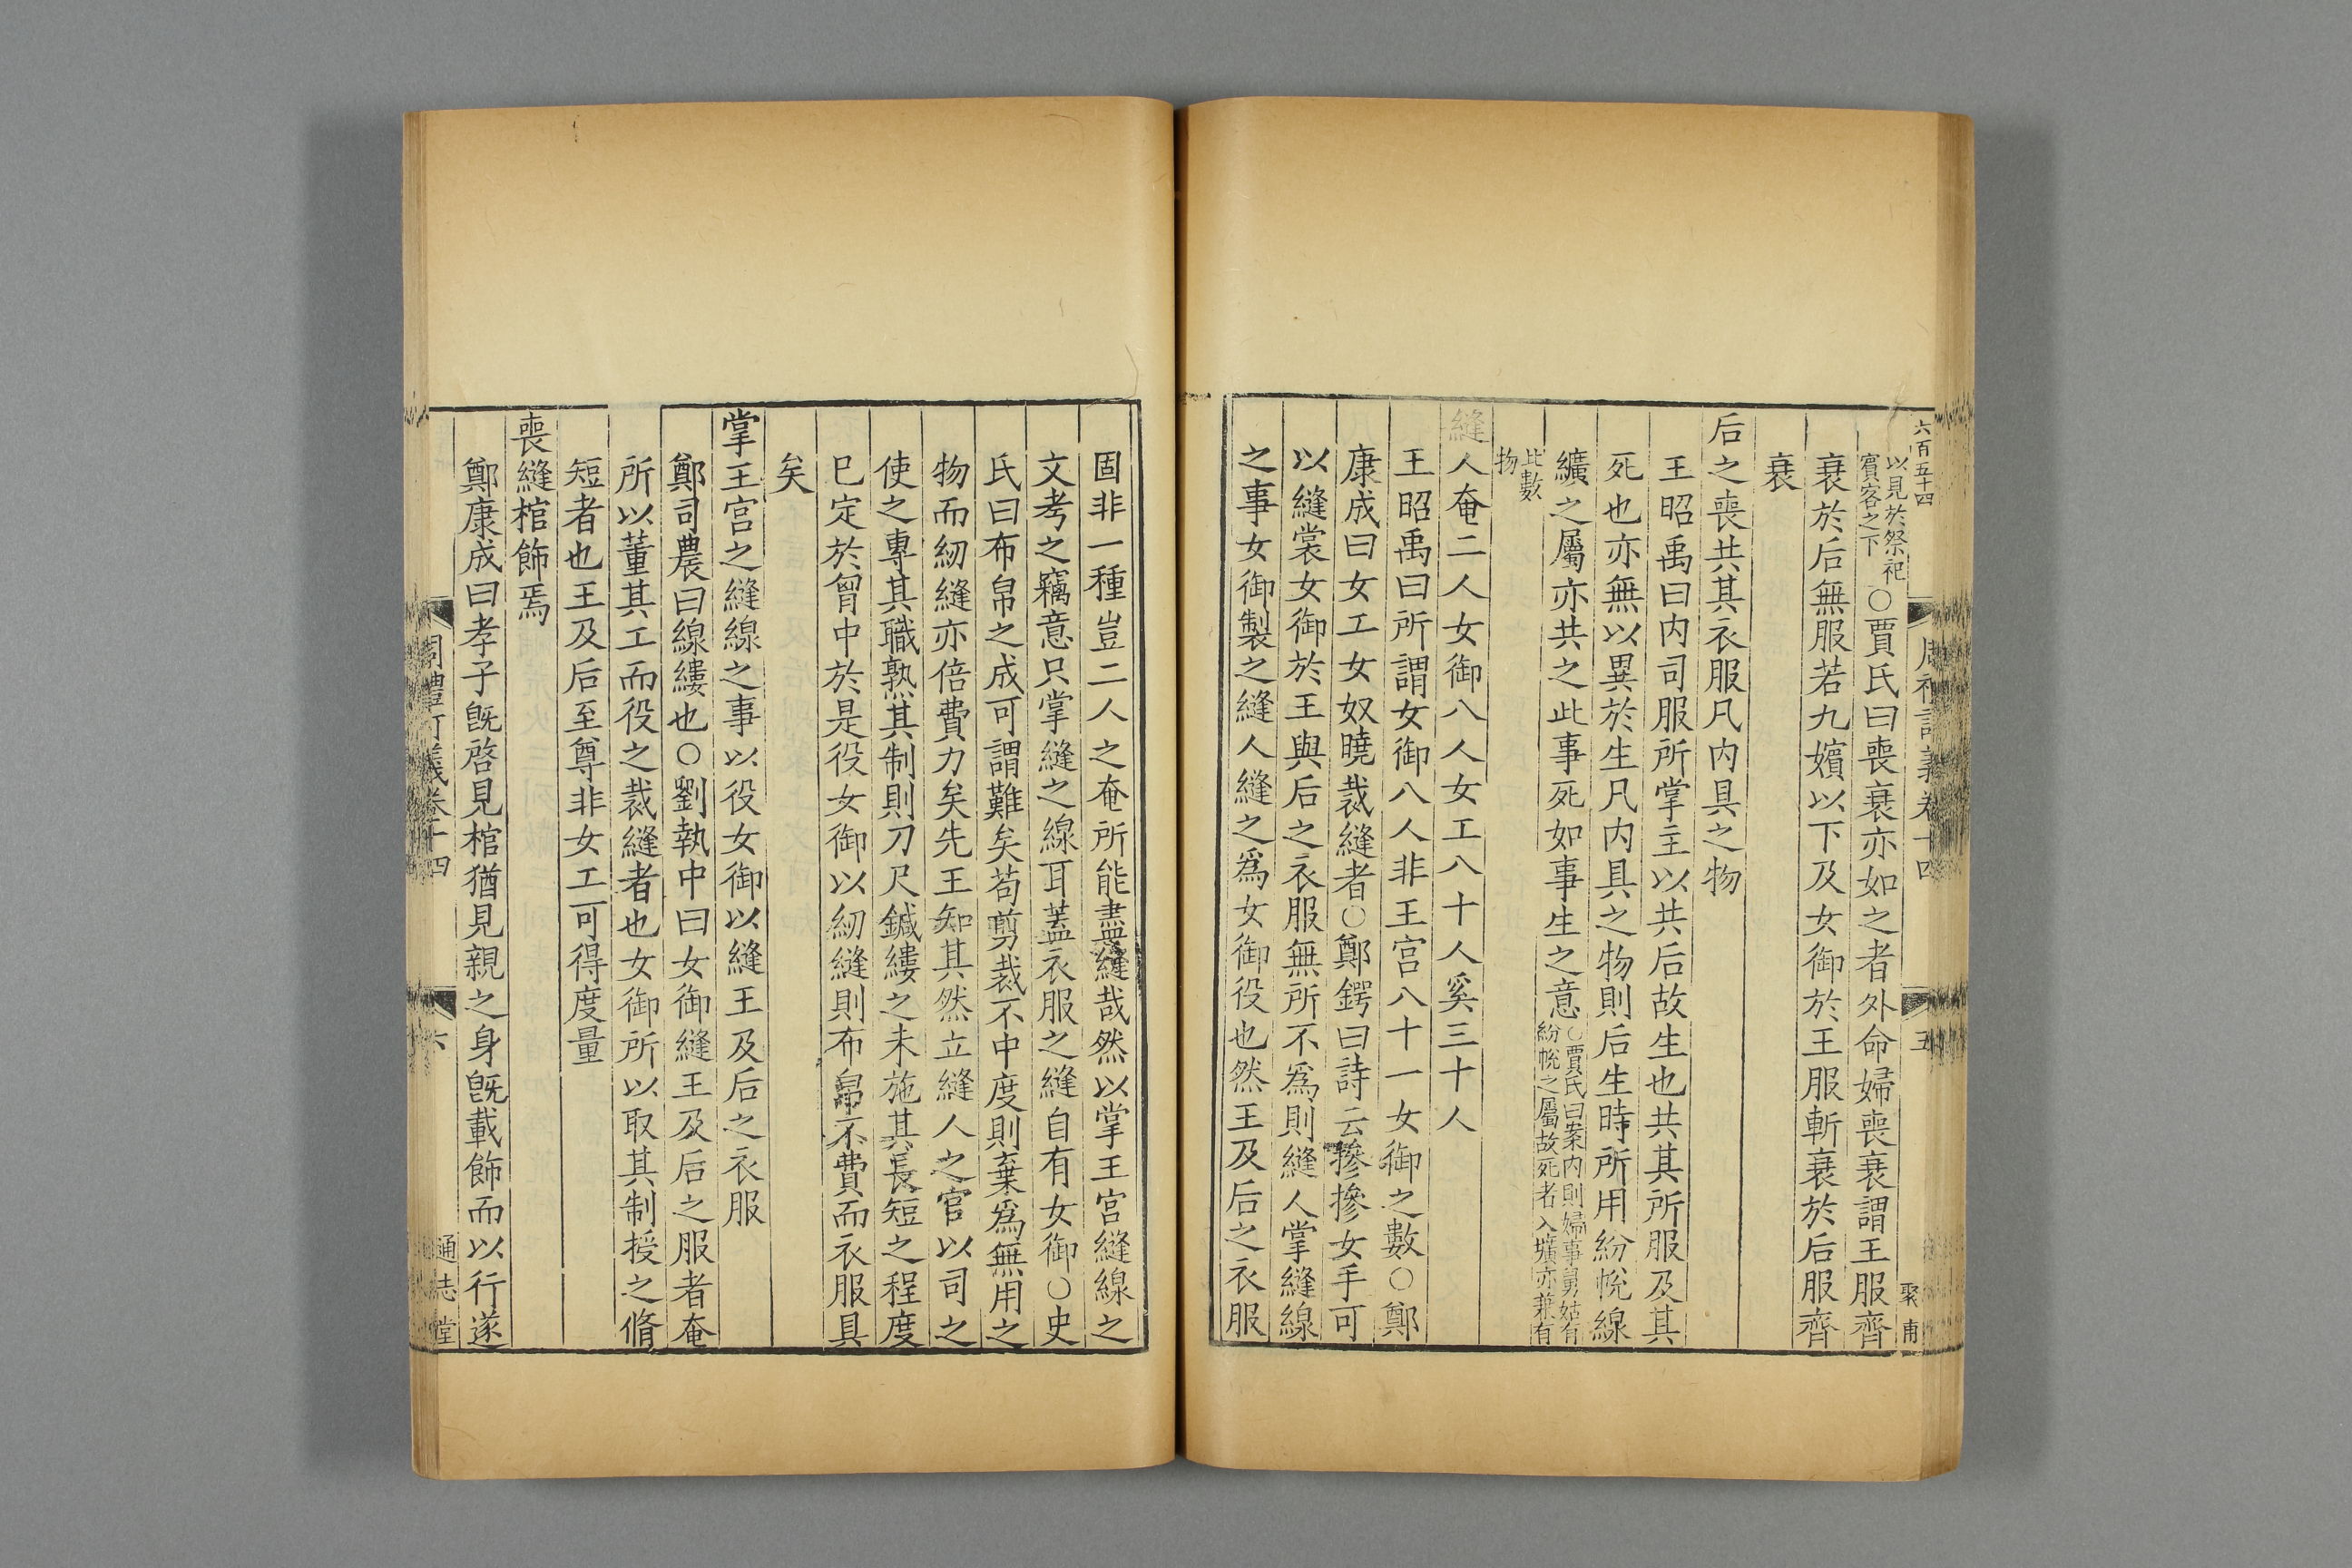 六百五十四
周禮訂義卷十四
五
聚甫
以見於祭祀
賓客之下
○賈氏曰喪衰亦如之者外命婦喪衰謂王服齊
衰於后無服若九嬪以下及女御於王服斬衰於后服齊
衰
后之喪共其衣服凡内具之物
王昭禹曰内司服所掌主以共后故生也共其所服及其
死也亦無以異於生凡内具之物則后生時所用紛帨線
纊之屬亦共之此事死如事生之意
○賈氏曰案内則婦事舅姑有
紛帨之屬故死者入壙亦兼有
此數
物
縫人奄二人女御八人女工八十人奚三十人
王昭禹曰所謂女御八人非王宫八十一女御之數○鄭
康成曰女工女奴曉裁縫者○鄭鍔曰詩云摻摻女手可
以縫裳女御於王與后之衣服無所不爲則縫人掌縫線
之事女御製之縫人縫之爲女御役也然王及后之衣服
固非一種豈二人之奄所能盡縫哉然以掌王宫縫線之
文考之竊意只掌縫之線耳蓋衣服之縫自有女御○史
氏曰布帛之成可謂難矣苟剪裁不中度則棄爲無用之
物而紉縫亦倍費力矣先王知其然立縫人之官以司之
使之專其職熟其制則刀尺鍼縷之未施其長短之程度
已定於胷中於是役女御以紉縫則布帛不費而衣服具
矣
掌王宫之縫線之事以役女御以縫王及后之衣服
鄭司農曰線縷也○劉執中曰女御縫王及后之服者奄
所以董其工而役之裁縫者也女御所以取其制授之脩
短者也王及后至尊非女工可得度量
喪縫棺飾焉
鄭康成曰孝子旣啓見棺猶見親之身旣載飾而以行遂
周禮訂義卷十四
六
通志堂